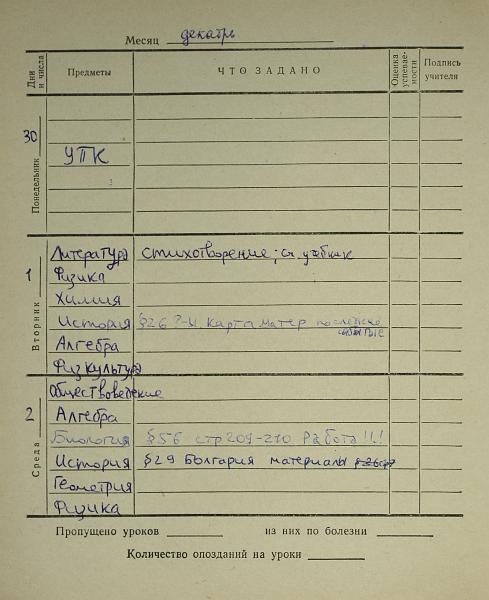 Месяц декабрь
Дни и числа Предметы ЧТО ЗАДАНО Оценка успеваемости Подпись учителя
30
Понедельник
УПК
1
Вторник
Литература стихотворение; сч. учебник
Физика
Химия
История §26 ?-ы Карта матер
Алгебра
Физкультура
2
Среда
Обществоведение
Алгебра
Биология §56 стр 209-210 Работа!!!
История §29 Болгария материалы
Геометрия
Физика
Пропущено уроков из них по болезни
Количество опозданий на уроки